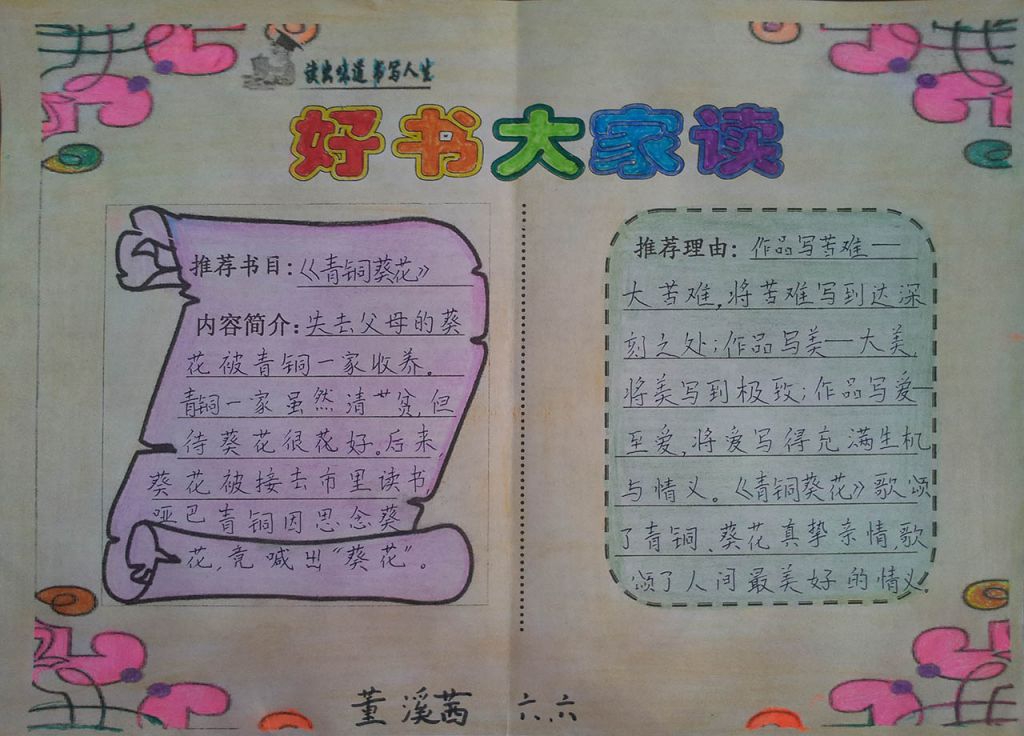 读出味道 书写人生
好书大家读
推荐书目:《青铜葵花》
内容简介:失去父母的葵
花被青铜一家收养。
青铜一家虽然清贫,但
待葵花很花好。后来,
葵花被接去市里读书,
哑巴青铜因思念葵
花,竟喊出“葵花”。
推荐理由:作品写苦难—
大苦难,将苦难写到达深
刻之处;作品写美—大美,
将美写到极致;作品写爱—
至爱,将爱写得充满生机
与情义。《青铜葵花》歌颂
了青铜、葵花真挚亲情,歌
颂了人间最美好的情义。
董溪茜 六、六